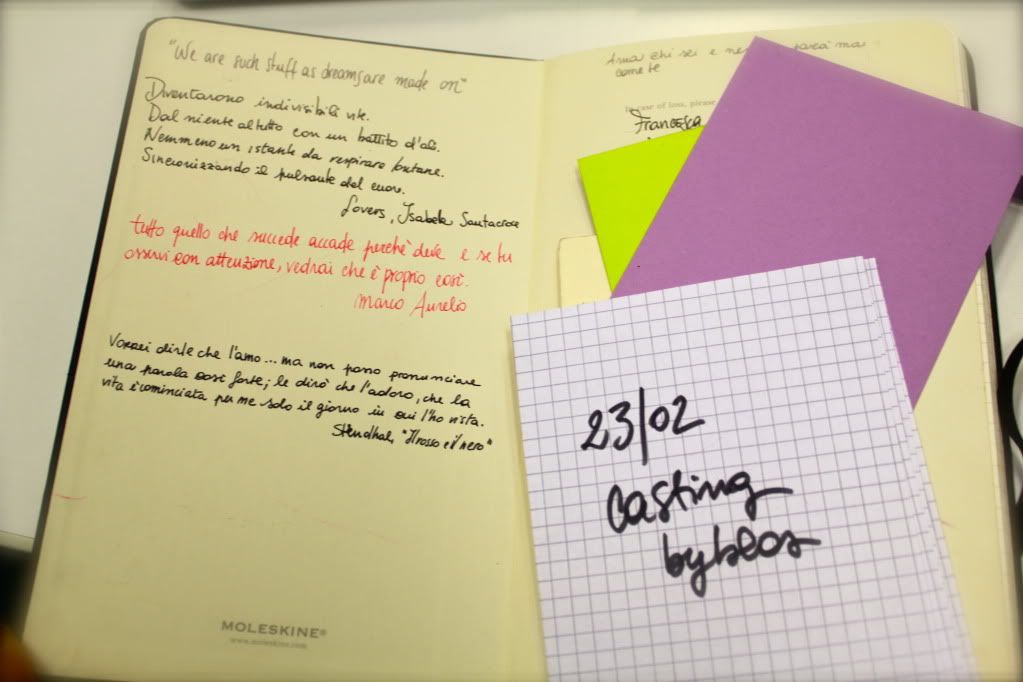 "We are such stuff as dreams are made on"
Diventarono indivisibili vite.
Dal niente al tutto con un battito d'ali.
Nemmeno un istante da respirare lontane.
Sincronizzando il pulsante del cuore.
Lovers, Isabella Santacroce
tutto quello che succede accade perchè deve e se tu
osservi con attenzione, vedrai che è proprio così.
Marco Aurelio
Vorrei dirle che l'amo... ma non posso pronunciare
una parola così forte; le dirò che l'adoro, che la
vita è cominciata per me solo il giorno in cui l'ho vista.
Stendhal, "Il rosso e il nero"
MOLESKINE®
www.moleskine.com
Ama chi sei e mai
come te
In case of loss, please
Francesca
23/02
casting
byblos